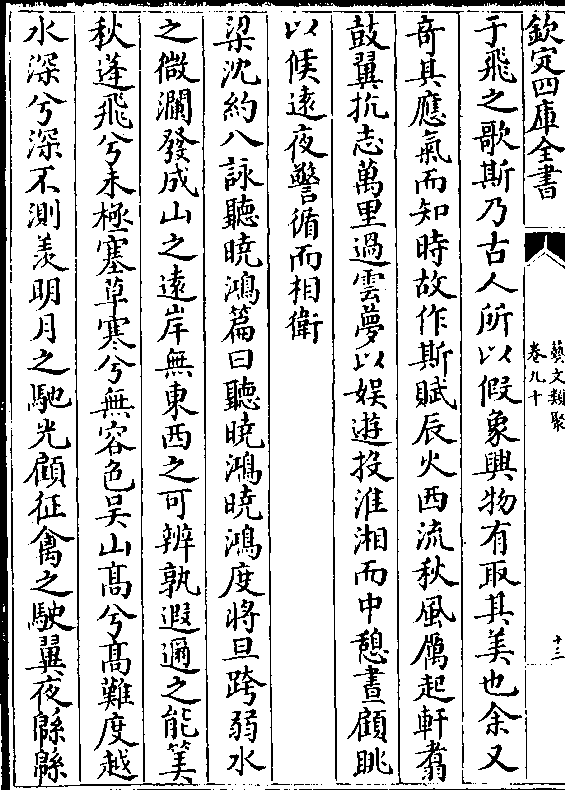 欽定四庫全書
藝文類聚
卷九十
十三
于飛之歌斯乃古人所以假象興物有取其美也余又
奇其應氣而知時故作斯賦辰火西流秋風厲起軒翥
鼓翼抗志萬里過雲夢以娱遊投淮湘而中憩晝顧眺
以候遠夜警循而相衛
梁沈約八詠聽曉鴻篇曰聽曉鴻曉鴻度將旦跨弱水
之微瀾發成山之遠岸無東西之可辨孰遐邇之能筭
秋蓬飛兮未極塞草寒兮無容色吴山高兮高難度越
水深兮深不測羨明月之馳光顧征禽之駛翼夜緜緜